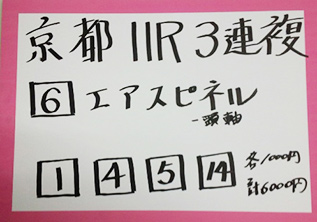 京都11R 3連複
6 エアスピネル
一頭軸
1 4 5 14 各1000円
計6000円